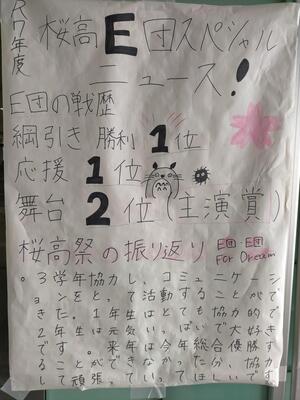 R7年度
桜高E団スペシャル
ニュース!
E団の戦歴
綱引き 勝利 1位
応援 1位
舞台 2位(主演賞)
桜高祭の振り返り
E団 E団
For Dream
○3学年協力し、コミュニケーシ
ョンをとって活動することがで
きた。1年生はとても協力的で
2年生は元気いっぱいで大好き
です。来年は今年総合優勝す
ることができなかった分、協力
して頑張っていってほしいです